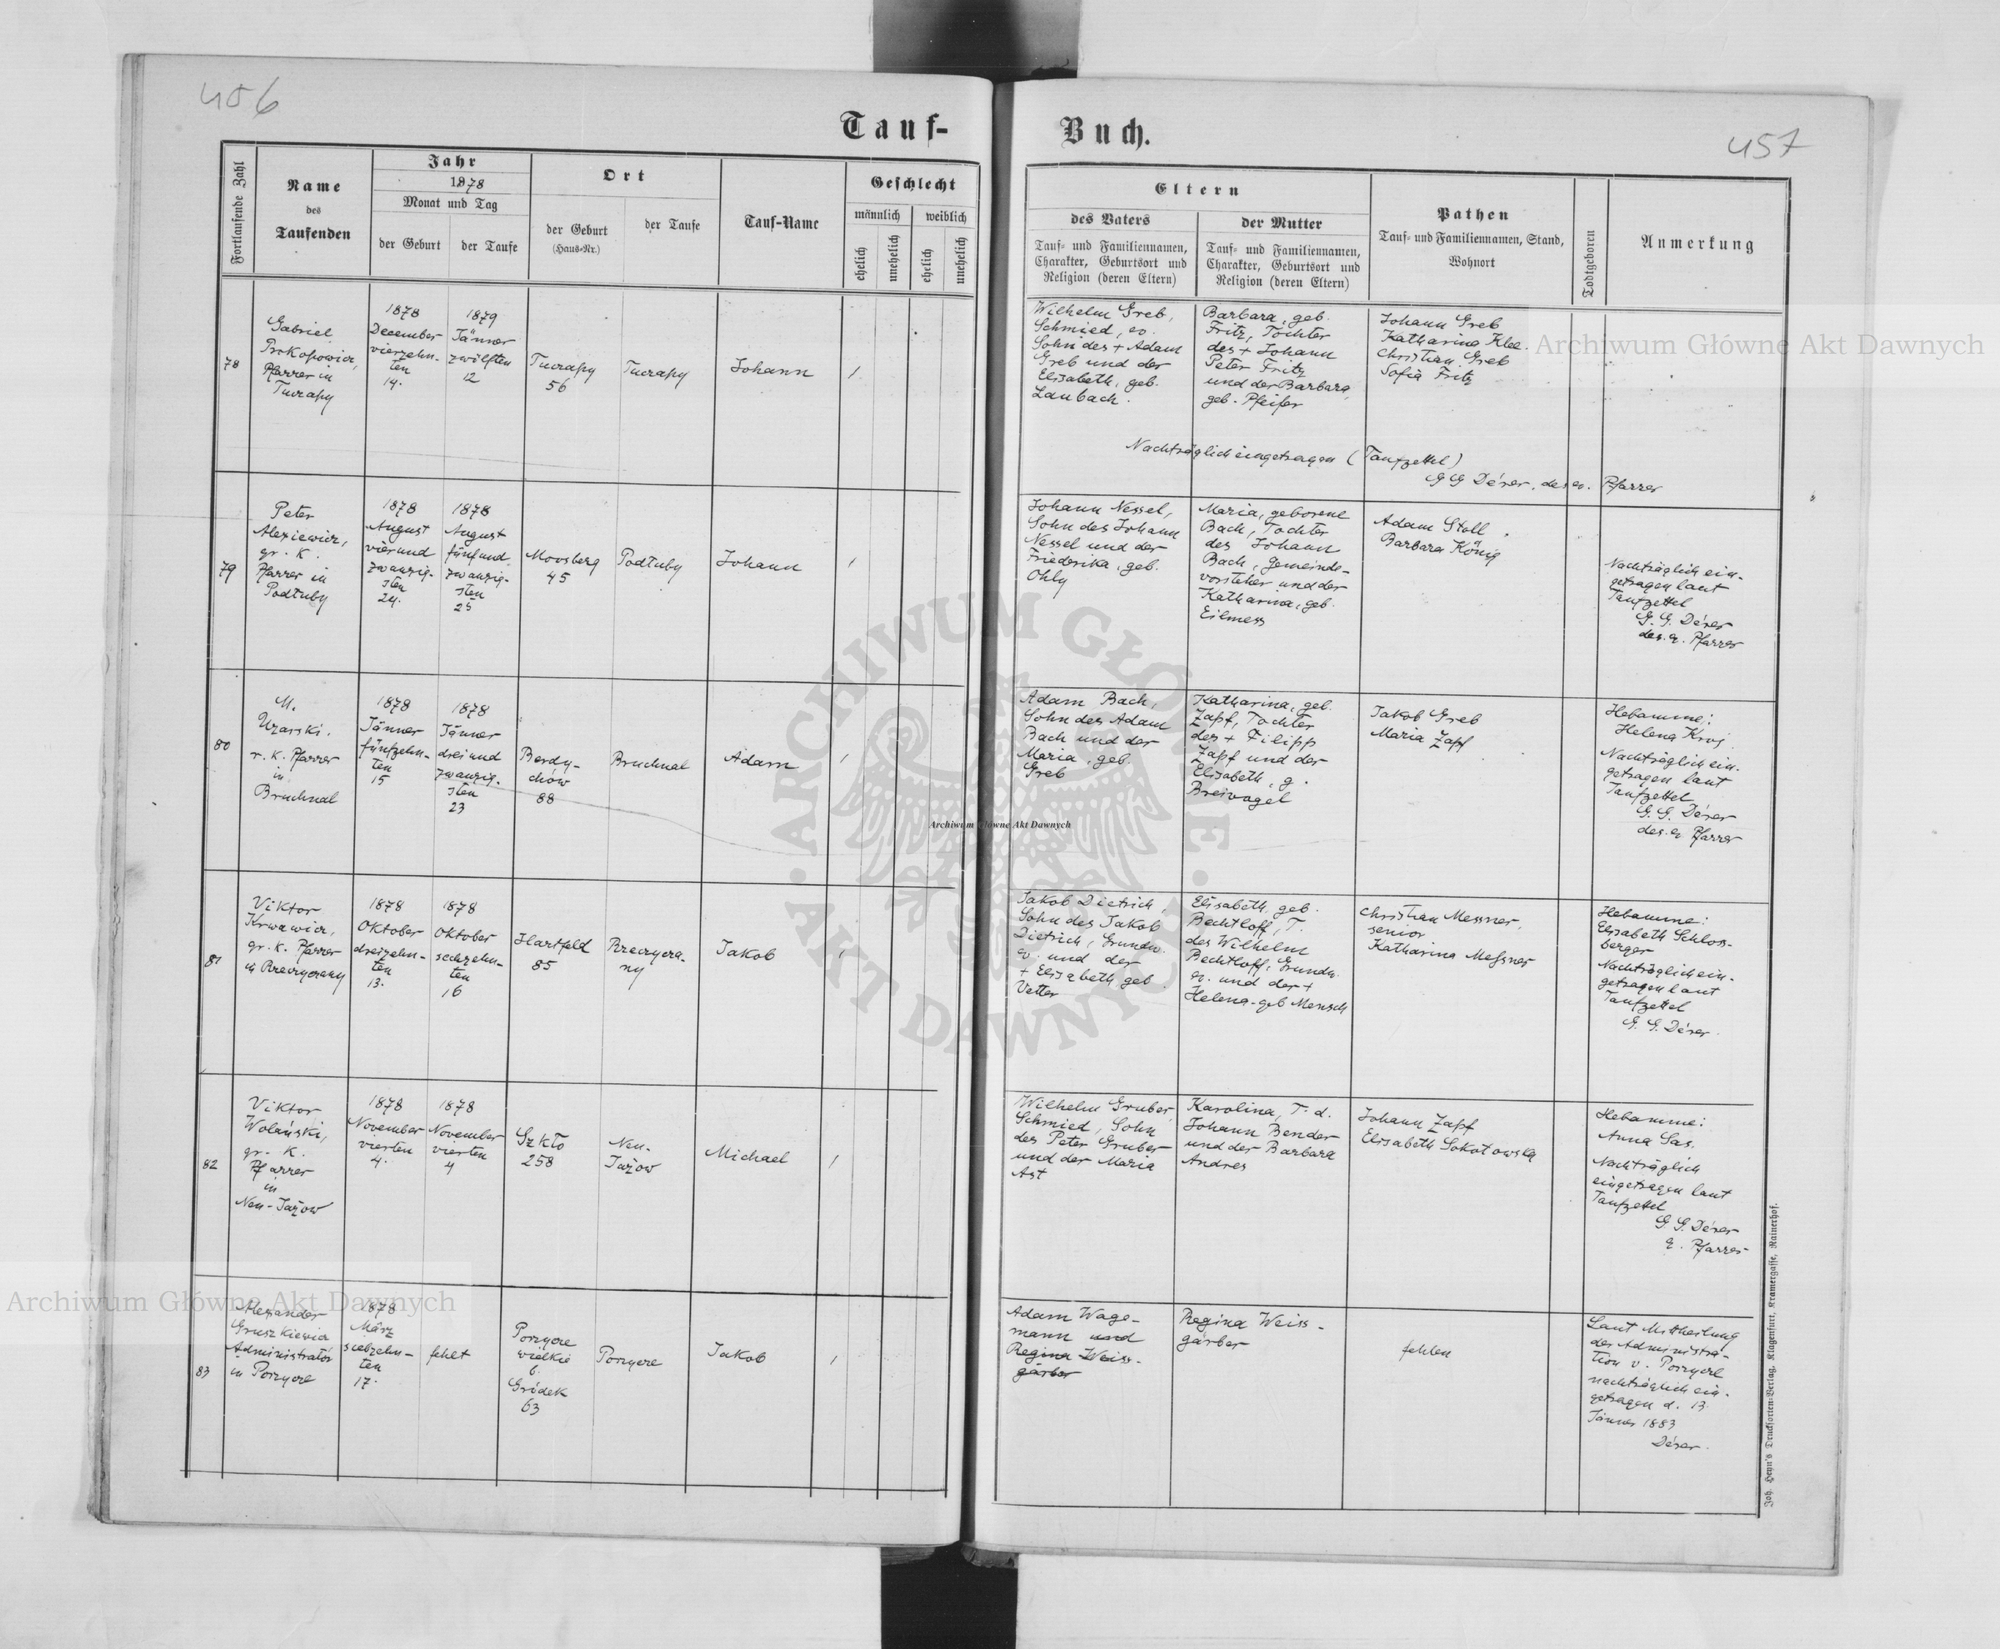 456
457
Tauf-
Buch.
Fortlaufende Zahl
Name
des
Taufenden
Jahr
1878
Monat und Tag
der Geburt
der Taufe
Ort
der Geburt
(Haus-Nr.)
der Taufe
Tauf-Name
Geschlecht
männlich
weiblich
ehelich
unehelich
ehelich
unehelich
Eltern
des Vaters
Tauf- und Familiennamen,
Charakter, Geburtsort und
Religion (deren Eltern)
der Mutter
Tauf- und Familiennamen,
Charakter, Geburtsort und
Religion (deren Eltern)
Pathen
Tauf- und Familiennamen, Stand,
Wohnort
Todtgeboren
Anmerkung
78
Gabriel
Prokopowicz,
Pfarrer in
Tuczapy
1878
December
vierzehn-
ten
14.
1879
Jänner
zwölften
12
Tuczapy
56
Tuczapy
Johann
1
Wilhelm Greb,
Schmied, ev.
Sohn des + Adam
Greb und der
Elisabeth, geb.
Laubach.
Barbara, geb.
Fritz, Tochter
des + Johann
Peter Fritz
und der Barbara,
geb. Pfeifer
Johann Greb
Katharina Klee.
Christian Greb
Sofia Fritz
Nachträglich eingetragen (Taufzettel)
G G Déser, des. ev. Pfarrer
79
Peter
Alexiewicz,
gr. k.
Pfarrer in
Podłuby
1878
August
vierund
zwanzig-
sten
24.
1878
August
fünfund,
zwanzig-
sten
25
Moosberg
45
Podłuby
Johann
1
Johann Nessel,
Sohn des Johann
Nessel und der
Friederika, geb.
Ohly
Maria, geborene
Bach, Tochter
des Johann
Bach, Gemeinde-
vorsteher und der
Katharina, geb.
Eilmess
Adam Stoll,
Barbara König
Nachträglich ein-
getragen laut
Taufzettel
G. G. Déser
des. ev. Pfarrer
80
M.
Uzarski.
r. k. Pfarrer
in
Bruchnal
1878
Jänner
fünfzehn-
ten
15
1878
Jänner
drei und
zwanzig-
sten
23
Berdy-
chów
88
Bruchnal
Adam
1
Adam Bach,
Sohn des Adam
Bach und der
Maria, geb.
Greb
Katharina, geb.
Zapf, Tochter
des + Filipp
Zapf und der
Elisabeth, g.
Breivogel
Jakob Greb
Maria Zapf
Hebamme:
Helena Kroj
Nachträglich ein-
getragen laut
Taufzettel
G. G. Déser
des. ev. Pfarrer
81
Viktor
Krwawicz,
gr. k. Pfarrer
in Przeczyczany
1878
Oktober
dreizehn-
ten
13.
1878
Oktober
sechzehn-
ten
16
Hartfeld
85
Przeczycza-
ny
Jakob
1
Jakob Dietrich,
Sohn des Jakob
Dietrich, Grundw.
ev. und der
+ Elisabeth, geb.
Vetter
Elisabeth, geb.
Bechtloff, T.
des Wilhelm
Bechtloff, Grundw.
ev. und der +
Helena, geb Mensch
Christian Messner,
senior
Katharina Messner
Hebamme:
Elisabeth Schloss-
berger
Nachträglich ein-
getragen laut
Taufzettel
G. G. Déser.
82
Viktor
Wolański,
gr. k.
Pfarrer
in
Neu-Jażow
1878
November
vierten
4.
1878
November
vierten
4
Szkło
258
Neu-
Jażow
Michael
1
Wilhelm Gruber,
Schmied, Sohn
des Peter Gruber
und der Maria
Ast
Karolina, T. d.
Johann Bender
und der Barbara
Andres
Johann Zapf
Elisabeth Sokołowska
Hebamme:
Anna Sas.
Nachträglich
eingetragen laut
Taufzettel
G G. Déser
ev. Pfarrer
83
Alexander
Gruszkiewicz
Administrator
in Porzycze
1878
März
siebzehn-
ten
17.
fehlt
Porzycze
wielkie
b.
Gródek
63
Porzycze
Jakob
1
Adam Wage-
mann und
Regina Weiss-
gärber
Regina Weiss-
gärber
fehlen
Laut Mittheilung
der Administra-
tion v. Porzycze
nachträglich ein-
getragen d. 13
Jänner 1883
Déser.
Joh. Heyn's Drucksorten-Verlag, Klagenfurt, Kramergasse, Rainerhof.
Archiwum Główne Akt Dawnych
Archiwum Główne Akt Dawnych
Archiwum Główne Akt Dawnych
ARCHIWUM GŁÓWNE
AKT DAWNYCH